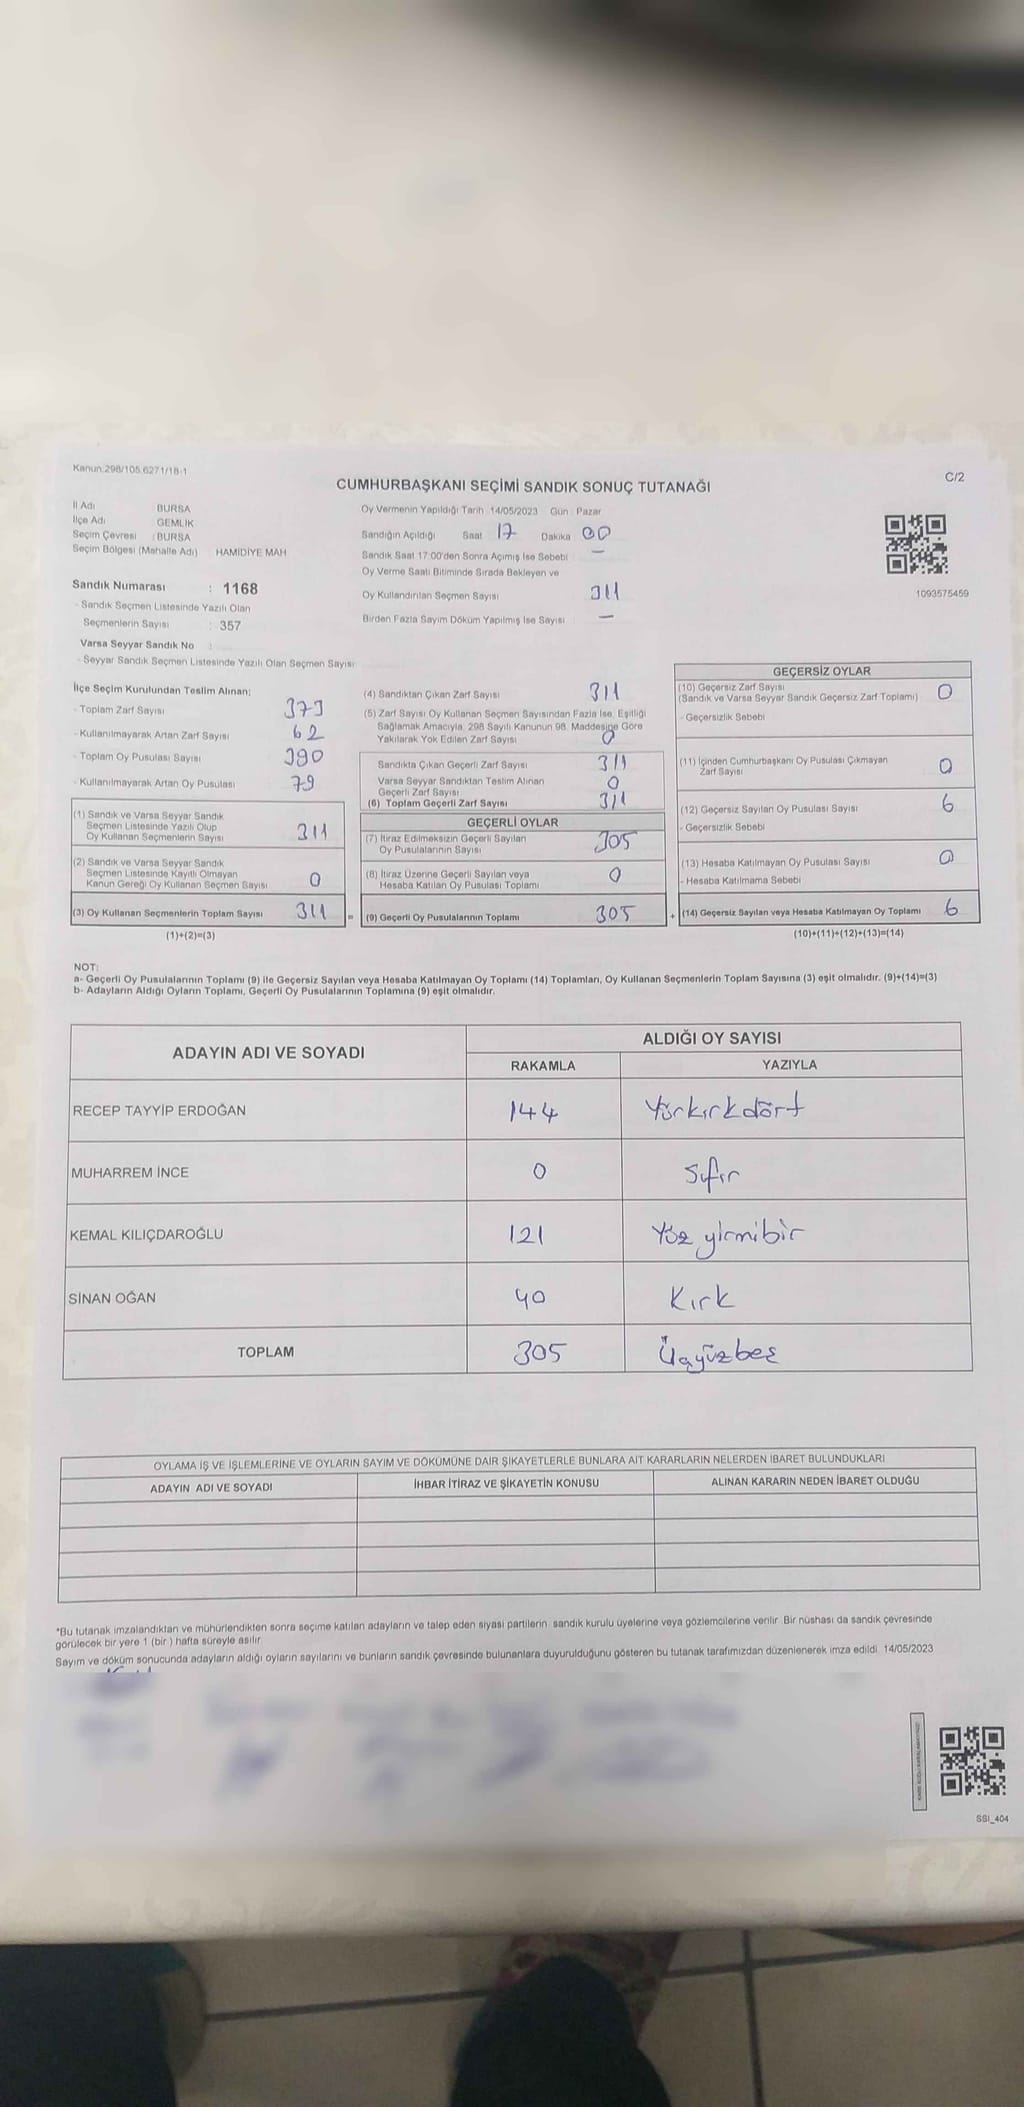 Kanun.298/105,6271/18-1
C/2
CUMHURBAŞKANI SEÇİMİ SANDIK SONUÇ TUTANAĞI
İl Adı BURSA
İlçe Adı GEMLİK
Seçim Çevresi : BURSA
Seçim Bölgesi (Mahalle Adı) HAMİDİYE MAH
Sandık Numarası : 1168
- Sandık Seçmen Listesinde Yazılı Olan
Seçmenlerin Sayısı : 357
Varsa Seyyar Sandık No :
- Seyyar Sandık Seçmen Listesinde Yazılı Olan Seçmen Sayısı
Oy Vermenin Yapıldığı Tarih 14/05/2023 Gün : Pazar
Sandığın Açıldığı Saat 17 Dakika 00
Sandık Saat 17:00'den Sonra Açımış İse Sebebi —
Oy Verme Saati Bitiminde Sırada Bekleyen ve
Oy Kullandırılan Seçmen Sayısı 311
Birden Fazla Sayım Döküm Yapılmış İse Sayısı —
1093575459
İlçe Seçim Kurulundan Teslim Alınan;
- Toplam Zarf Sayısı 373
- Kullanılmayarak Artan Zarf Sayısı 62
- Toplam Oy Pusulası Sayısı 390
- Kullanılmayarak Artan Oy Pusulası 79
(1) Sandık ve Varsa Seyyar Sandık
Seçmen Listesinde Yazılı Olup
Oy Kullanan Seçmenlerin Sayısı 311
(2) Sandık ve Varsa Seyyar Sandık
Seçmen Listesinde Kayıtlı Olmayan
Kanun Gereği Oy Kullanan Seçmen Sayısı 0
(3) Oy Kullanan Seçmenlerin Toplam Sayısı 311
(1)+(2)=(3)
(4) Sandıktan Çıkan Zarf Sayısı 311
(5) Zarf Sayısı Oy Kullanan Seçmen Sayısından Fazla İse, Eşitliği
Sağlamak Amacıyla, 298 Sayılı Kanunun 98. Maddesine Göre
Yakılarak Yok Edilen Zarf Sayısı 0
Sandıkta Çıkan Geçerli Zarf Sayısı 311
Varsa Seyyar Sandıktan Teslim Alınan
Geçerli Zarf Sayısı 0
(6) Toplam Geçerli Zarf Sayısı 311
GEÇERLİ OYLAR
(7) İtiraz Edilmeksizin Geçerli Sayılan
Oy Pusulalarının Sayısı 305
(8) İtiraz Üzerine Geçerli Sayılan veya
Hesaba Katılan Oy Pusulası Toplamı 0
= (9) Geçerli Oy Pusulalarının Toplamı 305
GEÇERSİZ OYLAR
(10) Geçersiz Zarf Sayısı
(Sandık ve Varsa Seyyar Sandık Geçersiz Zarf Toplamı) 0
- Geçersizlik Sebebi
(11) İçinden Cumhurbaşkanı Oy Pusulası Çıkmayan
Zarf Sayısı 0
(12) Geçersiz Sayılan Oy Pusulası Sayısı 6
- Geçersizlik Sebebi
(13) Hesaba Katılmayan Oy Pusulası Sayısı 0
- Hesaba Katılmama Sebebi
+ (14) Geçersiz Sayılan veya Hesaba Katılmayan Oy Toplamı 6
(10)+(11)+(12)+(13)=(14)
NOT:
a- Geçerli Oy Pusulalarının Toplamı (9) ile Geçersiz Sayılan veya Hesaba Katılmayan Oy Toplamı (14) Toplamları, Oy Kullanan Seçmenlerin Toplam Sayısına (3) eşit olmalıdır. (9)+(14)=(3)
b- Adayların Aldığı Oyların Toplamı, Geçerli Oy Pusulalarının Toplamına (9) eşit olmalıdır.
ADAYIN ADI VE SOYADI ALDIĞI OY SAYISI
RAKAMLA YAZIYLA
RECEP TAYYİP ERDOĞAN 144 Yüzkırkdört
MUHARREM İNCE 0 Sıfır
KEMAL KILIÇDAROĞLU 121 Yüz yirmibir
SİNAN OĞAN 40 Kırk
TOPLAM 305 Üçyüzbeş
OYLAMA İŞ VE İŞLEMLERİNE VE OYLARIN SAYIM VE DÖKÜMÜNE DAİR ŞİKAYETLERLE BUNLARA AİT KARARLARIN NELERDEN İBARET BULUNDUKLARI
ADAYIN ADI VE SOYADI İHBAR İTİRAZ VE ŞİKAYETİN KONUSU ALINAN KARARIN NEDEN İBARET OLDUĞU
*Bu tutanak imzalandıktan ve mühürlendikten sonra seçime katılan adayların ve talep eden siyasi partilerin sandık kurulu üyelerine veya gözlemcilerine verilir. Bir nüshası da sandık çevresinde
görülecek bir yere 1 (bir) hafta süreyle asılır.
Sayım ve döküm sonucunda adayların aldığı oyların sayılarını ve bunların sandık çevresinde bulunanlara duyurulduğunu gösteren bu tutanak tarafımızdan düzenlenerek imza edildi. 14/05/2023
SSI_404